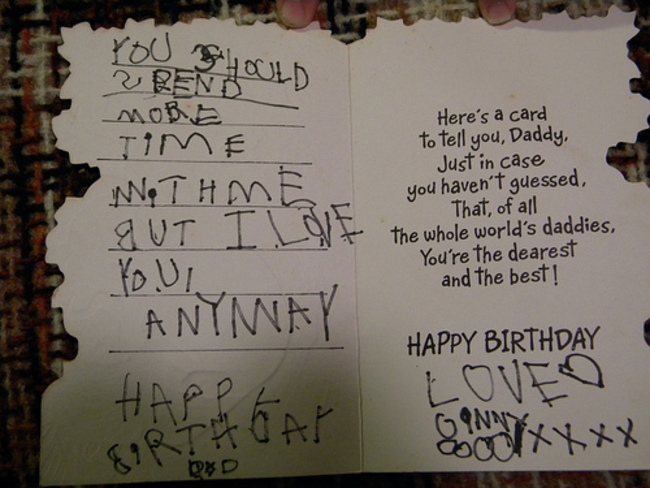 YOU SHOULD
SPEND
MORE
TIME
WITH ME
BUT I LOVE
YOU
ANYWAY
HAPPY
BIRTHDAY
DAD
Here's a card
to tell you, Daddy,
Just in case
you haven't guessed,
That, of all
the whole world's daddies,
You're the dearest
and the best!
HAPPY BIRTHDAY
LOVE
GINNY
OOOO XXXX